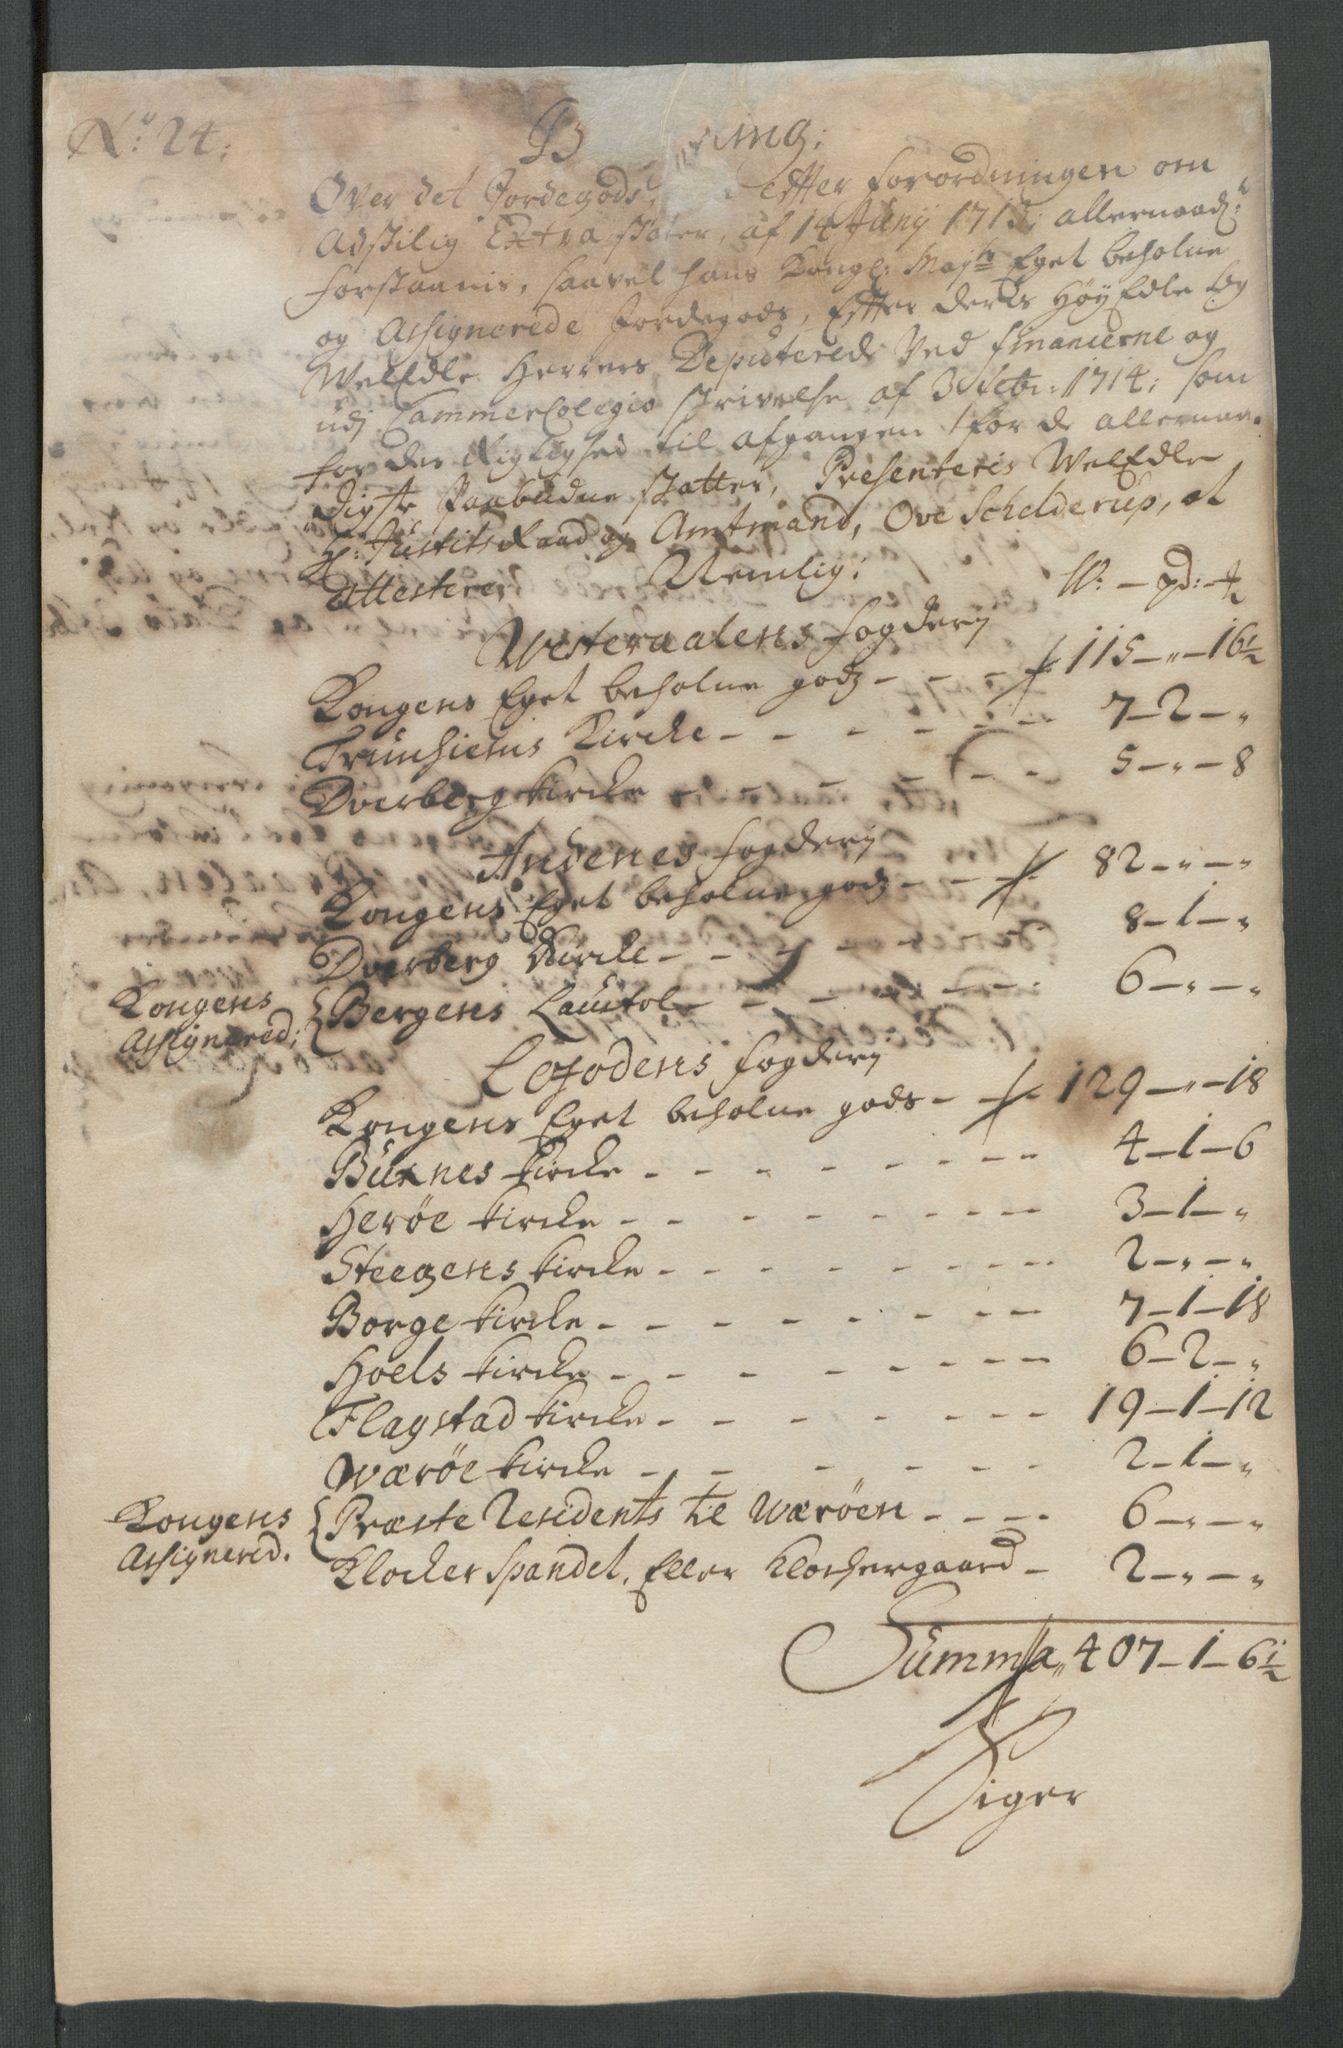 No 24:
Over det Jordegods, effter forordningen om
Adskilig Extra skater, af 14 Junij 1713 allernaad:
forstaanis, saavel hans Kongl: Mayts Eget beholne
og Assignerede Jordegods, Effter deris HøyEdle og
WelEdle Herrers Deputerede Ved financierne og
udj CammerColegio skrivelse af 3 febr: 1714: som
for den Riglighed til afgangen for de allernaa-
digste Paabudne skatter, Presenteris WelEdle
Hr: Justits Raad og Amtmand, Ove Schelderup, at
attestere, Nemlig: W: - pd: -
Westeraalens fogderj
Kongens Eget beholne godz - - - 115 - " - 16½
Trunhiems Kircke - - - - - - 7 - 2 - "
Dverberg kircke - - - - - - 5 - " - 8
Andenes fogderj
Kongens Eget beholne godz - - - 82 - " - "
Dverberg Kircke - - - - - - 8 - 1 - "
Kongens
Assignered; { Bergens Lauitol - - - - - - 6 - " - "
Lofodens fogderj
Kongens Eget beholne gods - - - 129 - " - 18
Buxnes kircke - - - - - - - - 4 - 1 - 6
Herøe kircke - - - - - - - - 3 - 1 - "
Steegens kircke - - - - - - - - 2 - " - "
Borge kircke - - - - - - - - 7 - 1 - 18
Hoels kircke - - - - - - - - 6 - 2 - "
Flagstad kircke - - - - - - - 19 - 1 - 12
Wærøe kircke - - - - - - - 2 - 1 - "
Kongens
Assignered. { Præste Residents til Wærøen - - - - 6 - " - "
Klocker Spandet, Eller Klockergaard - 2 - " - "
Summa 407 - 1 - 6½